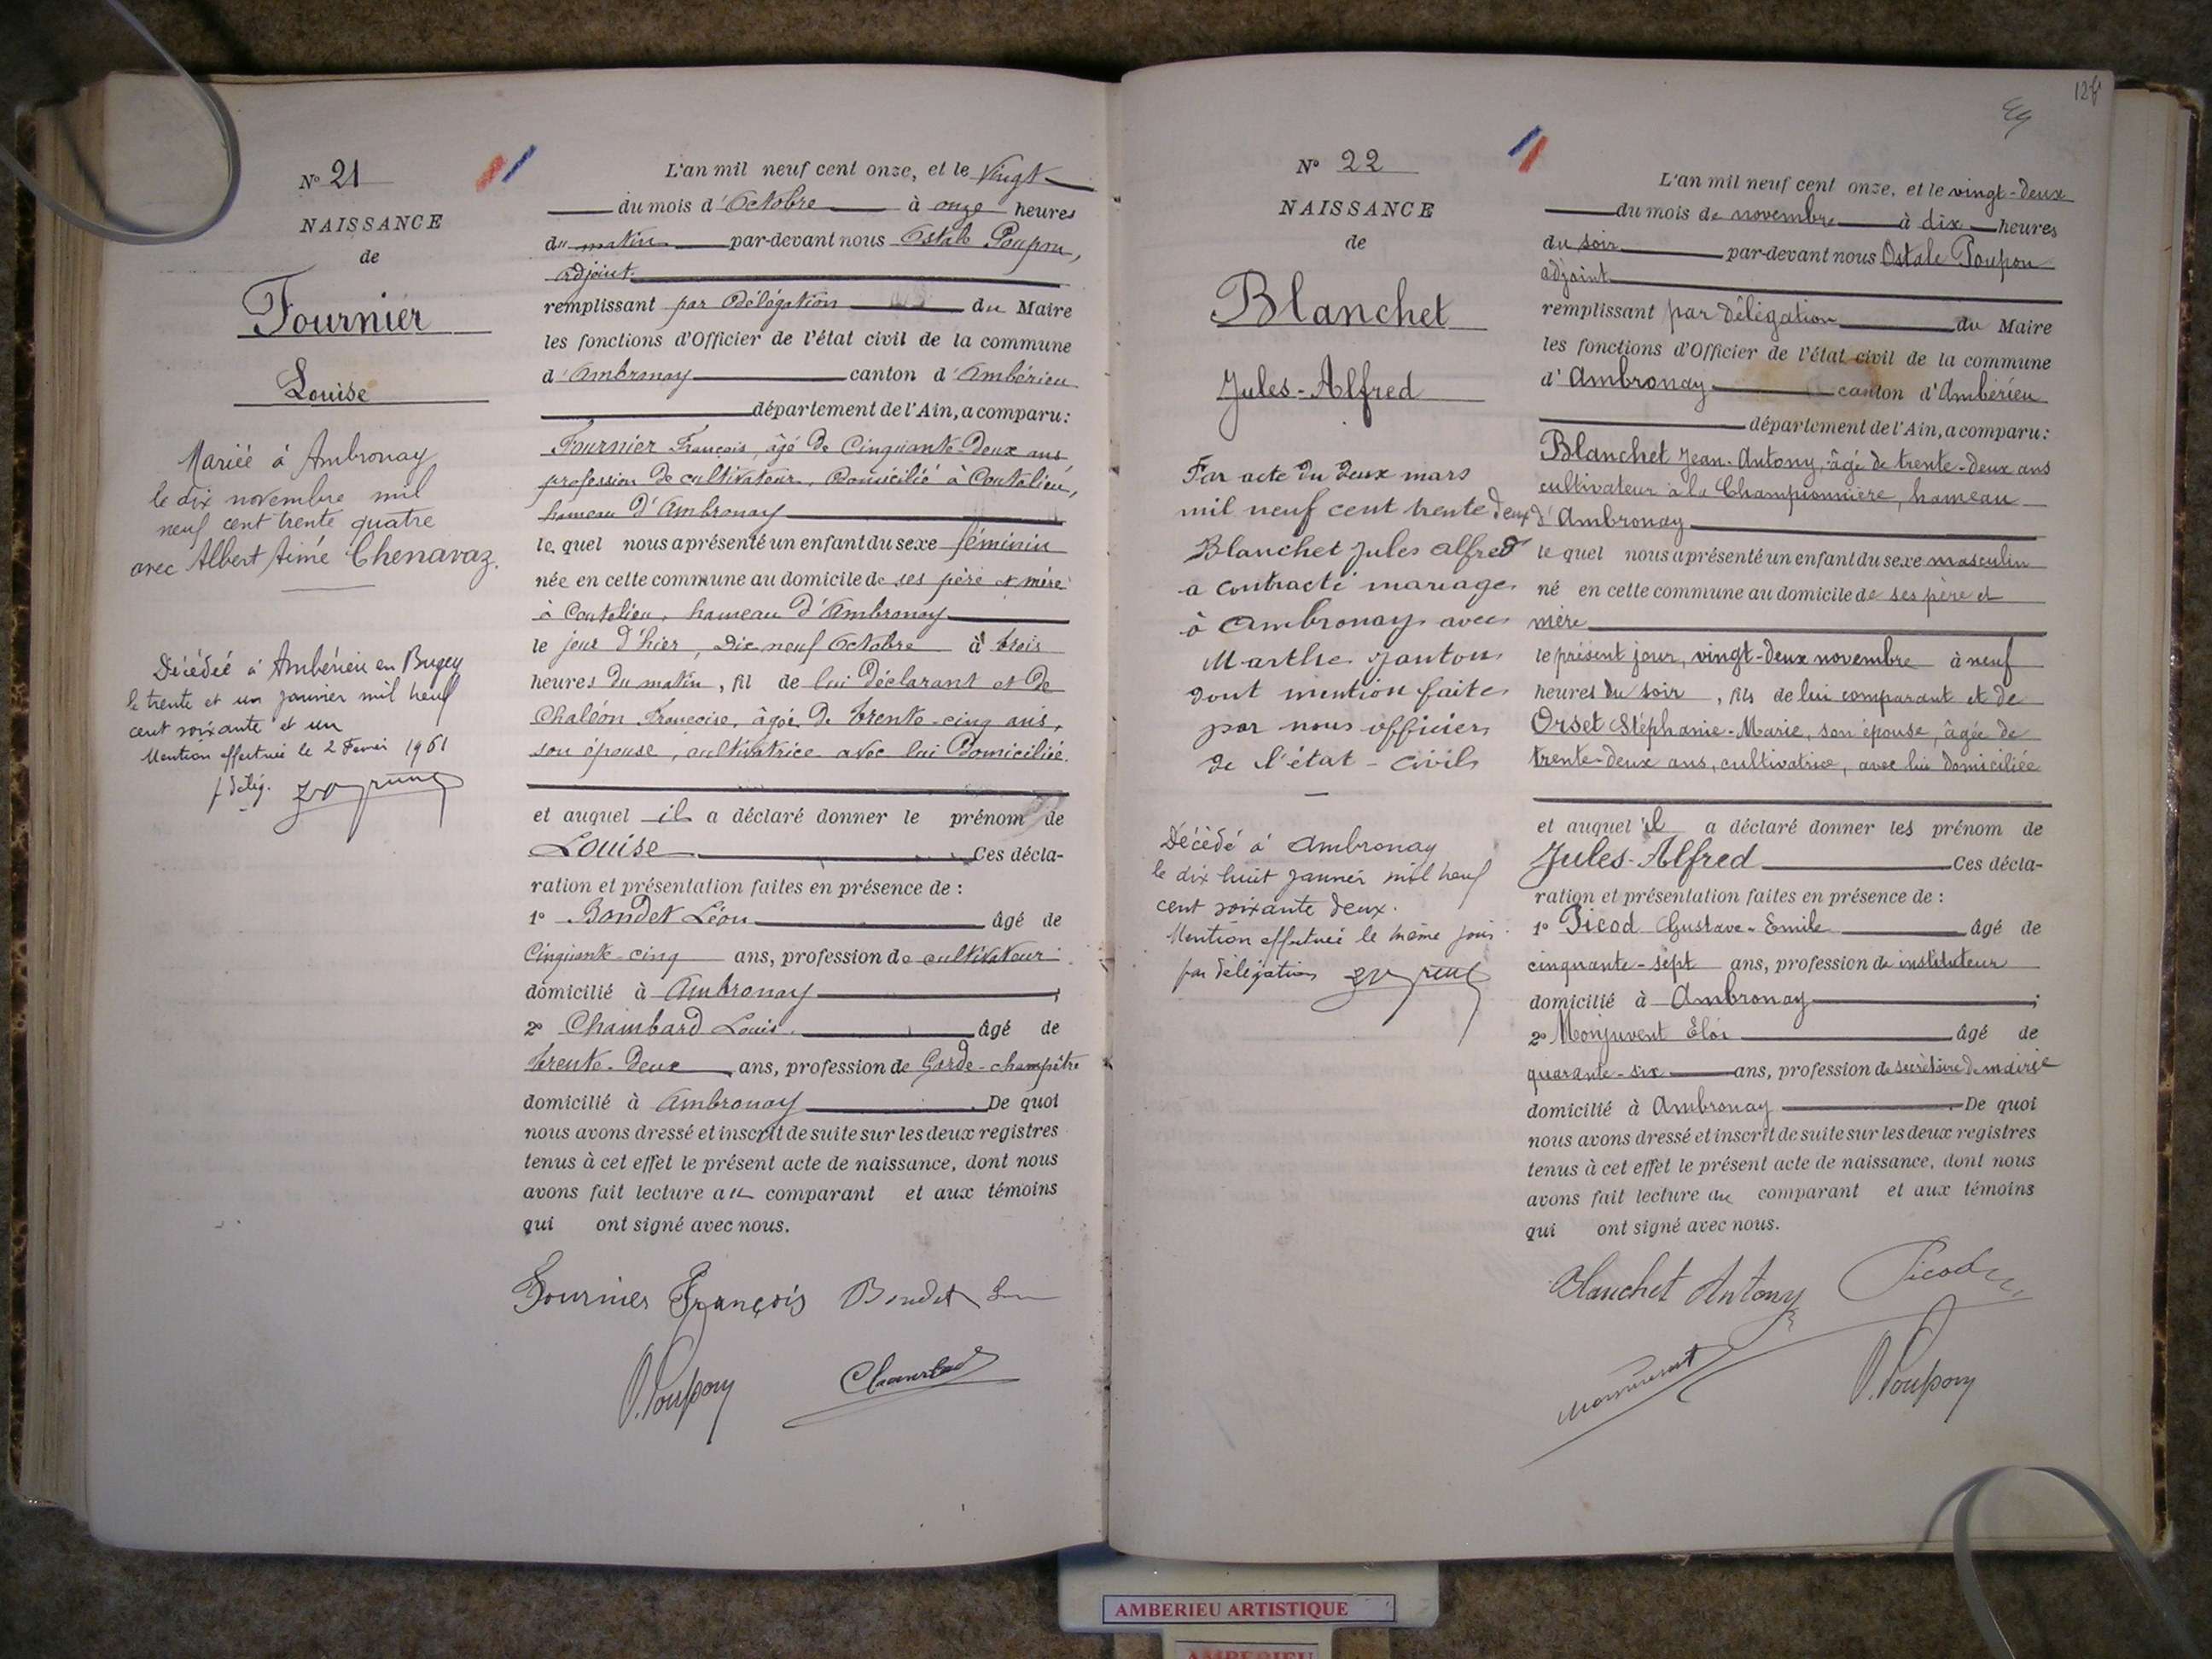 N° 21
NAISSANCE
de
Fournier
Louise
Mariée à Ambronay
le dix novembre mil
neuf cent trente quatre
avec Albert Aimé Chenavaz.
Décédée à Ambérieu en Bugey
le trente et un janvier mil neuf
cent soixante et un
Mention effectuée le 2 Février 1961
p délég.
L'an mil neuf cent onze, et le vingt
du mois d'Octobre à onze heures
du matin par-devant nous Ostale Poupon,
adjoint.
remplissant par délégation du Maire
les fonctions d'Officier de l'état civil de la commune
d'Ambronay canton d'Ambérieu
département de l'Ain, a comparu:
Fournier François, âgé de Cinquante-Deux ans
profession de cultivateur, domicilié à Coutelieu,
hameau d'Ambronay
le quel nous a présenté un enfant du sexe féminin
née en cette commune au domicile de ses père et mère
à Coutelieu, hameau d'Ambronay
le jour d'hier, dix neuf Octobre à trois
heures du matin, fil de lui déclarant et de
Chaléon Françoise, âgée de trente-cinq ans,
son épouse, cultivatrice avec lui Domiciliée.
et auquel il a déclaré donner le prénom de
Louise Ces décla-
ration et présentation faites en présence de :
1° Bondet Léon âgé de
Cinquante-cinq ans, profession de cultivateur
domicilié à Ambronay ;
2° Chambard Louis. âgé de
trente-deux ans, profession de Garde-champêtre
domicilié à Ambronay . De quoi
nous avons dressé et inscrit de suite sur les deux registres
tenus à cet effet le présent acte de naissance, dont nous
avons fait lecture au comparant et aux témoins
qui ont signé avec nous.
Fournier François Bondet
O. Poupon Chambard
N° 22
NAISSANCE
de
Blanchet
Jules-Alfred
Par acte du deux mars
mil neuf cent trente deux
Blanchet Jules Alfred
a contracté mariage
à Ambronay avec
Marthe Janton
dont mention faite
par nous officier
de l'état-civil
Décédé à Ambronay
le dix huit janvier mil neuf
cent soixante deux.
Mention effectuée le même jour
par délégation
L'an mil neuf cent onze, et le vingt-deux
du mois de novembre à dix heures
du soir par-devant nous Ostale Poupon
adjoint
remplissant par délégation du Maire
les fonctions d'Officier de l'état civil de la commune
d'Ambronay canton d'Ambérieu
département de l'Ain, a comparu:
Blanchet Jean-Antony, âgé de trente-deux ans
cultivateur à la Championnière, hameau
d'Ambronay
le quel nous a présenté un enfant du sexe masculin
né en cette commune au domicile de ses père et
mère
le présent jour, vingt-deux novembre à neuf
heures du soir, fils de lui comparant et de
Orset Stéphanie-Marie, son épouse, âgée de
trente-deux ans, cultivatrice, avec lui domiciliée
et auquel il a déclaré donner les prénom de
Jules-Alfred Ces décla-
ration et présentation faites en présence de :
1° Picod Gustave-Emile âgé de
cinquante-sept ans, profession de instituteur
domicilié à Ambronay ;
2° Monjuvent Eloi âgé de
quarante-six ans, profession de secrétaire de mairie
domicilié à Ambronay . De quoi
nous avons dressé et inscrit de suite sur les deux registres
tenus à cet effet le présent acte de naissance, dont nous
avons fait lecture au comparant et aux témoins
qui ont signé avec nous.
Blanchet Antony Picod
Monjuvent O. Poupon
AMBERIEU ARTISTIQUE
AMBERIEU